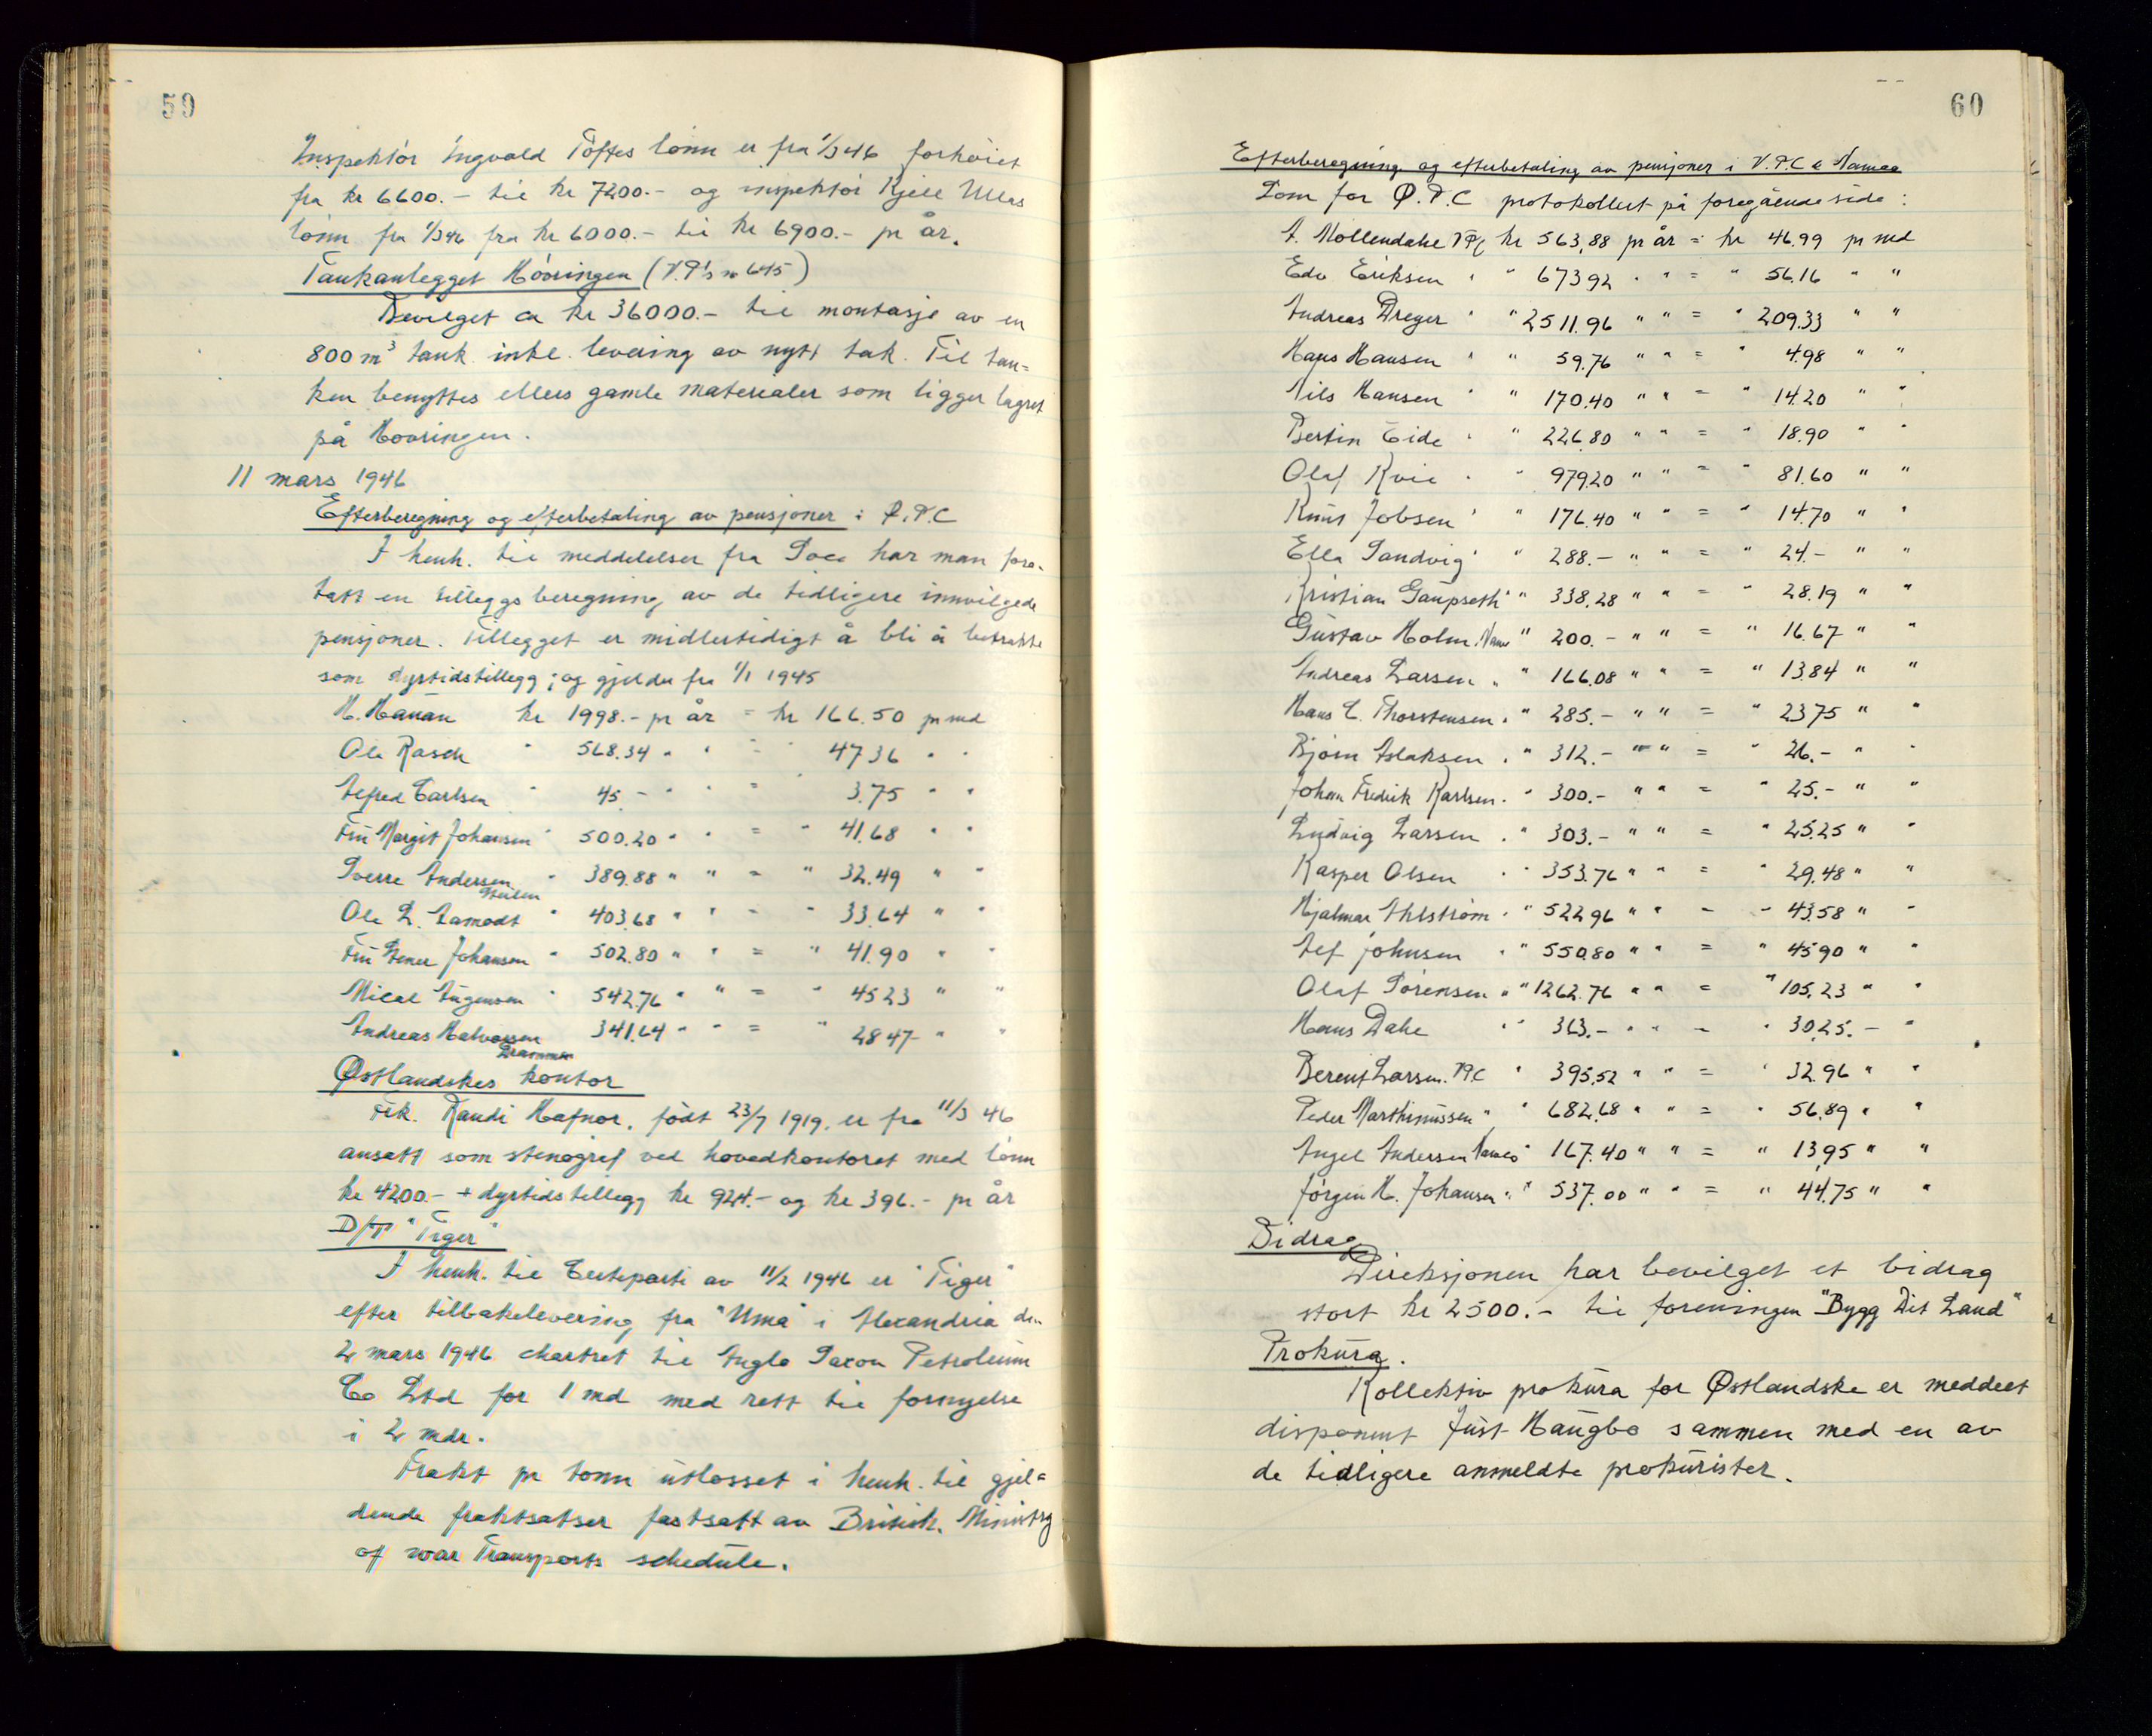 59
Inspektör Ingvald Töftes lönn er fra 1/3 46 forhöiet
fra kr 6600.- til kr 7200.- og inspektör Kjell Ullas
lönn fra 1/3 46 fra kr 6000.- til kr 6900.- pr år.
Tankanlegget Hövringen (V.P's nr 645)
Bevilget ca kr 36000.- til montasje av en
800 m³ tank inkl. levering av nytt tak. Til tan=
ken benyttes ellers gamle materialer som ligger lagret
på Hovringen.
11 mars 1946
Efterberegning og efterbetaling av pensjoner i Ö.P.C
I henh. til meddelelser fra Soco har man fore-
tatt en tilleggsberegning av de tidligere innvilgede
pensjoner. Tillegget er midlertidigt å bli å betrakte
som dyrtidstillegg; og gjelder fra 1/1 1945
H. Hanan kr 1998.- pr år = kr 166.50 pr md
Ole Rasch " 568.34 " " = " 47 36 " "
Alfred Carlsen " 45 - " " = 3.75 " "
Fru Margit Johansen " 500.20 " " = " 41.68 " "
Sverre Andersen " 389.88 " " = " 32.49 " "
Steilen
Ole L. Aamodt " 403.68 " " = " 33.64 " "
Fru Johansen " 502.80 " " = " 41.90 " "
Mical Ingensen " 542.76 " " = " 45 23 " "
Andreas Halvorsen 341.64 " " = " 28 47 - "
Drammen
Østlandskes kontor
Frk. Randi Hafnor, födt 23/7 1919, er fra 11/3 46
ansatt som stenograf ved hovedkontoret med lönn
kr 4200.- + dyrtidstillegg kr 924.- og kr 396.- pr år
D/T "Tiger"
I henh. til Certeparti av 11/2 1946 er "Tiger"
efter tilbakelevering fra "Uma" i Alexandria den
2 mars 1946 chartret til Anglo Saxon Petroleum
Co Ltd for 1 md med rett til fornyelse
i 2 mdr.
Frakt pr tonn utlosset i henh. til gjel=
dende fraktsatser fastsatt av British Ministry
of war Transports schedule.
60
Efterberegning og efterbetaling av pensjoner i V.P.C & Namco
Som for Ö.P.C protokollert på foregående side:
A. Mollendahl VPC kr 563,88 pr år = kr 46.99 pr md
Edv Eriksen " " 673 92 " " = " 56.16 " "
Andreas Dreyer " " 2511.96 " " = " 209.33 " "
Hans Hansen " " 59.76 " " = " 4.98 " "
Nils Hansen " " 170.40 " " = " 14.20 " "
Bertin Eide " " 226.80 " " = " 18.90 " "
Olaf Kvie " " 979.20 " " = " 81.60 " "
Knut Jobsen " " 176.40 " " = " 14.70 " "
Ella Sandvig " " 288.- " " = " 24.- " "
Kristian Gaupseth " " 338.28 " " = " 28.19 " "
Gustav Holm. Namco " 200.- " " = " 16.67 " "
Andreas Larsen " " 166.08 " " = " 13.84 " "
Hans C. Thorstensen " " 285.- " " = " 23 75 " "
Björn Aslaksen " " 312.- " " = " 26.- " "
Johan Fredrik Karlsen " " 300.- " " = " 25.- " "
Ludvig Larsen " " 303.- " " = " 25.25 " "
Kasper Olsen " " 353.76 " " = " 29.48 " "
Hjalmar Ahlström " " 522 96 " " = " 43.58 " "
Alf johnsen " " 550.80 " " = " 45 90 " "
Olaf Sörensen " " 1262.76 " " = " 105.23 " "
Hans Dahl " " 363.- " " = " 30.25.- "
Berent Larsen. VPC " 395.52 " " = " 32.96 " "
Peder Marthinussen " " 682.68 " " = " 56.89 " "
Angel Andersen Namco " 167.40 " " = " 13,95 " "
Jörgen H. Johansen " " 537.00 " " = " 44.75 " "
Bidrag
Direksjonen har bevilget et bidrag
stort kr 2500.- til foreningen "Bygg Dit Land"
Prokura.
Kollektiv prokura for Østlandske er meddelt
disponent Just Haugbo sammen med en av
de tidligere anmeldte prokurister.